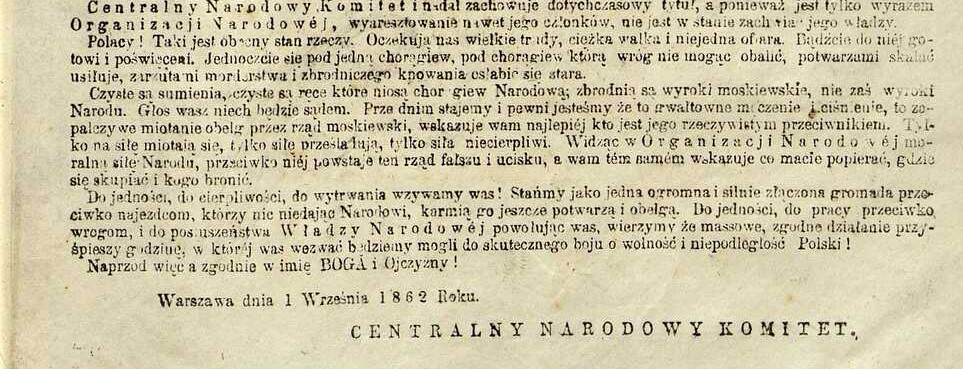 Centralny Narodowy Komitet i nadal zachowuje dotychczasowy tytuł, a ponieważ jest tylko wyrazem
Organizacji Narodowéj, wyaresztowanie nawet jego członków, nie jest w stanie jego władzy.
Polacy! Taki jest obecny stan rzeczy. Oczekują nas wielkie trudy, ciężka walka i niejedna ofiara. Bądźcie do niéj go-
towi i poświęceni. Jednoczcie się pod jedną chorągiew, pod chorągiew którą wróg nie mogąc obalić, potwarzami skalać
usiłuje, zarzutami morderstwa i zbrodniczego knowania osłabić się stara.
Czyste są sumienia, czyste są ręce które niosą chorągiew Narodową; zbrodnią są wyroki moskiewskie, nie zaś wyroki
Narodu. Głos wasz niech będzie sądem. Przed nim stajemy i pewni jesteśmy że to gwałtowne męczenie i ciśnienie, to za-
palczywe miotanie obelg przez rząd moskiewski, wskazuje wam najlepiéj kto jest jego rzeczywistym przeciwnikiem. Tyl-
ko na siłę miotają się, tylko siłę prześladują, tylko siła niecierpliwi. Widząc w Organizacji Narodowéj mo-
ralną siłę Narodu, przeciwko niéj powstaje ten rząd fałszu i ucisku, a wam tém samém wskazuje co macie popierać, gdzie
się skupiać i kogo bronić.
Do jedności, do cierpliwości, do wytrwania wzywamy was! Stańmy jako jedna ogromna i silnie złączona gromada prze-
ciwko najezdcom, którzy nic niedając Narodowi, karmią go jeszcze potwarzą i obelgą. Do jedności, do pracy przeciwko
wrogom, i do posłuszeństwa Władzy Narodowéj powołując was, wierzymy że massowe, zgodne działanie przy-
śpieszy godzinę, w któréj was wezwać będziemy mogli do skutecznego boju o wolność i niepodległość Polski!
Naprzód więc a zgodnie w imię BOGA i Ojczyzny!
Warszawa dnia 1 Września 1862 Roku.
CENTRALNY NARODOWY KOMITET.